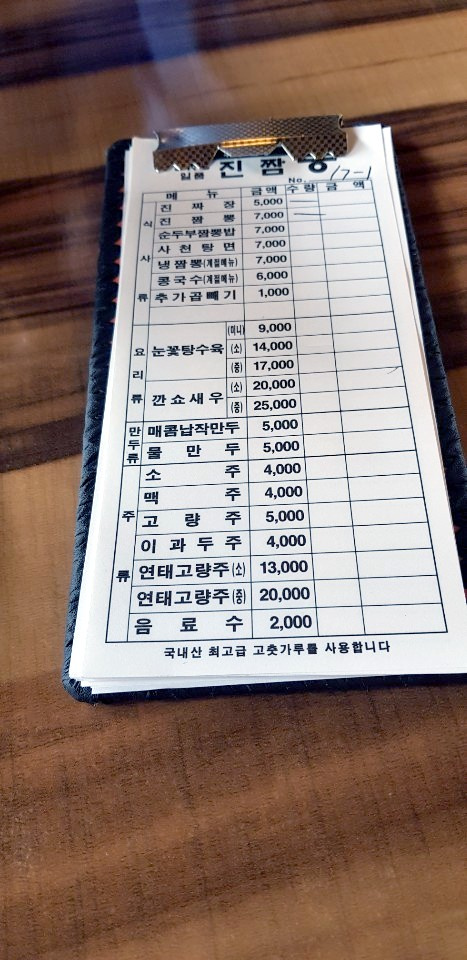 일품 진짬뽕
No. 17-1
메뉴 금액 수량 금액
식사류
진짜장 5,000
진짬뽕 7,000
순두부짬뽕밥 7,000
사천탕면 7,000
냉짬뽕(계절메뉴) 7,000
콩국수(계절메뉴) 6,000
추가곱빼기 1,000
요리류
눈꽃탕수육 (미니) 9,000
(소) 14,000
(중) 17,000
깐쇼새우 (소) 20,000
(중) 25,000
만두류
매콤납작만두 5,000
물만두 5,000
주류
소주 4,000
맥주 4,000
고량주 5,000
이과두주 4,000
연태고량주(소) 13,000
연태고량주(중) 20,000
음료수 2,000
국내산 최고급 고춧가루를 사용합니다